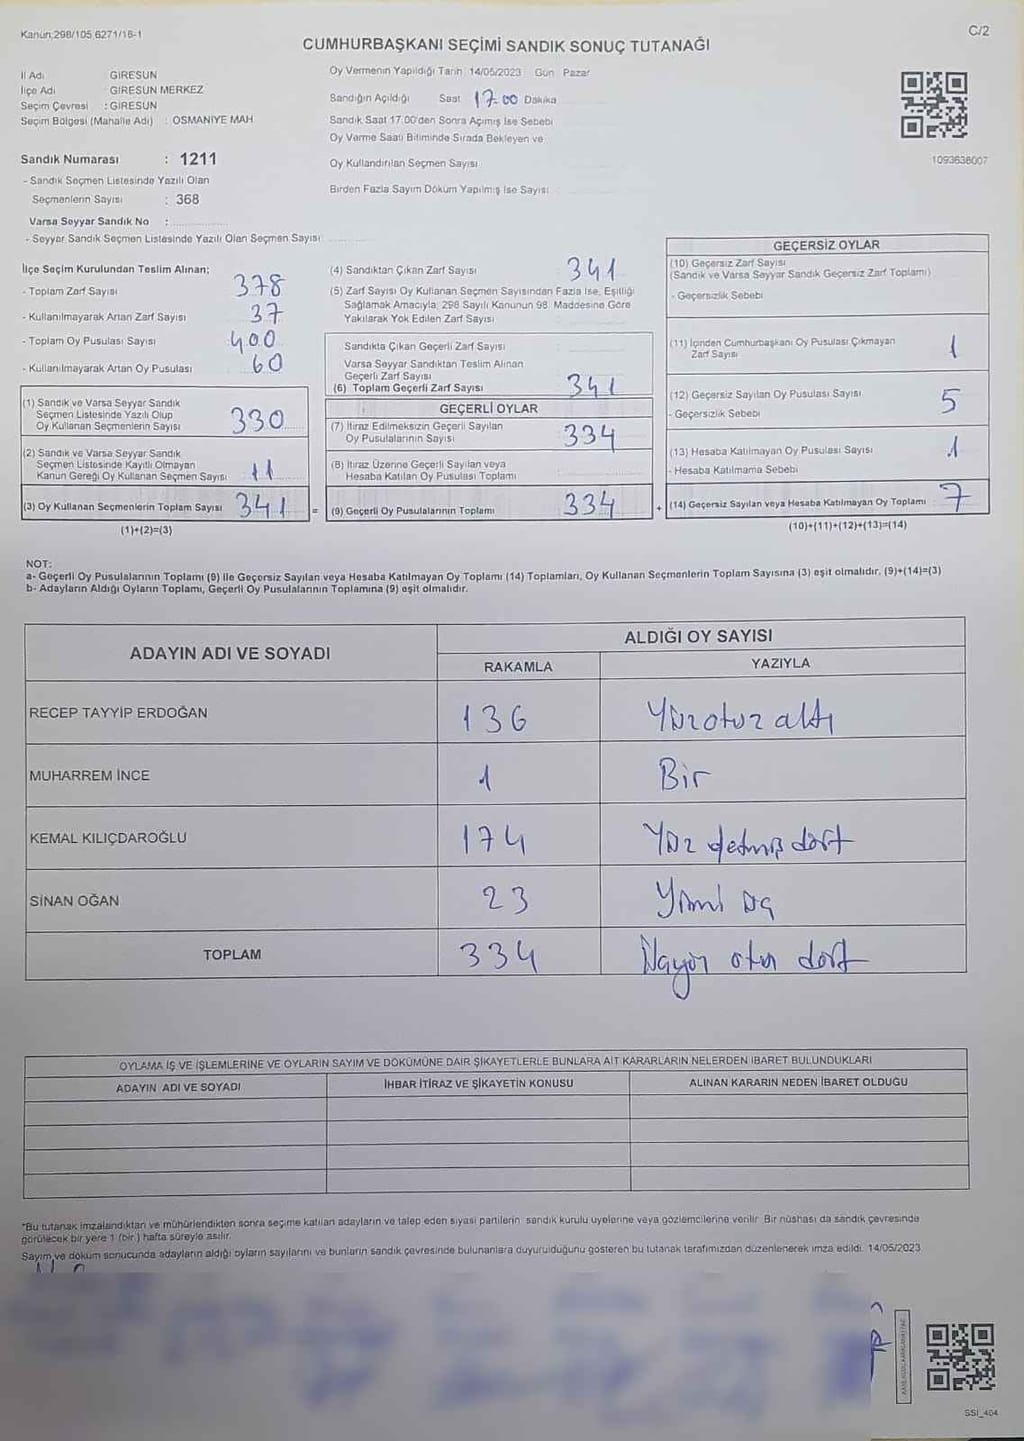 Kanun;298/105,6271/16-1
C/2
CUMHURBAŞKANI SEÇİMİ SANDIK SONUÇ TUTANAĞI
İl Adı GİRESUN
İlçe Adı GİRESUN MERKEZ
Seçim Çevresi : GİRESUN
Seçim Bölgesi (Mahalle Adı) : OSMANİYE MAH
Sandık Numarası : 1211
- Sandık Seçmen Listesinde Yazılı Olan
Seçmenlerin Sayısı : 368
Varsa Seyyar Sandık No :
- Seyyar Sandık Seçmen Listesinde Yazılı Olan Seçmen Sayısı
Oy Vermenin Yapıldığı Tarih 14/05/2023 Gün Pazar
Sandığın Açıldığı Saat 17 00 Dakika
Sandık Saat 17.00'den Sonra Açımış İse Sebebi
Oy Verme Saati Bitiminde Sırada Bekleyen ve
Oy Kullandırılan Seçmen Sayısı
Birden Fazla Sayım Döküm Yapılmış İse Sayısı
1093638007
İlçe Seçim Kurulundan Teslim Alınan;
- Toplam Zarf Sayısı 378
- Kullanılmayarak Artan Zarf Sayısı 37
- Toplam Oy Pusulası Sayısı 400
- Kullanılmayarak Artan Oy Pusulası 60
(1) Sandık ve Varsa Seyyar Sandık
Seçmen Listesinde Yazılı Olup
Oy Kullanan Seçmenlerin Sayısı 330
(2) Sandık ve Varsa Seyyar Sandık
Seçmen Listesinde Kayıtlı Olmayan
Kanun Gereği Oy Kullanan Seçmen Sayısı 11
(3) Oy Kullanan Seçmenlerin Toplam Sayısı 341 =
(1)+(2)=(3)
(4) Sandıktan Çıkan Zarf Sayısı 341
(5) Zarf Sayısı Oy Kullanan Seçmen Sayısından Fazla İse, Eşitliği
Sağlamak Amacıyla, 298 Sayılı Kanunun 98. Maddesine Göre
Yakılarak Yok Edilen Zarf Sayısı
Sandıkta Çıkan Geçerli Zarf Sayısı
Varsa Seyyar Sandıktan Teslim Alınan
Geçerli Zarf Sayısı
(6) Toplam Geçerli Zarf Sayısı 341
GEÇERLİ OYLAR
(7) İtiraz Edilmeksizin Geçerli Sayılan
Oy Pusulalarının Sayısı 334
(8) İtiraz Üzerine Geçerli Sayılan veya
Hesaba Katılan Oy Pusulası Toplamı
(9) Geçerli Oy Pusulalarının Toplamı 334 +
GEÇERSİZ OYLAR
(10) Geçersiz Zarf Sayısı
(Sandık ve Varsa Seyyar Sandık Geçersiz Zarf Toplamı)
- Geçersizlik Sebebi
(11) İçinden Cumhurbaşkanı Oy Pusulası Çıkmayan
Zarf Sayısı 1
(12) Geçersiz Sayılan Oy Pusulası Sayısı 5
- Geçersizlik Sebebi
(13) Hesaba Katılmayan Oy Pusulası Sayısı 1
- Hesaba Katılmama Sebebi
(14) Geçersiz Sayılan veya Hesaba Katılmayan Oy Toplamı 7
(10)+(11)+(12)+(13)=(14)
NOT:
a- Geçerli Oy Pusulalarının Toplamı (9) ile Geçersiz Sayılan veya Hesaba Katılmayan Oy Toplamı (14) Toplamları, Oy Kullanan Seçmenlerin Toplam Sayısına (3) eşit olmalıdır. (9)+(14)=(3)
b- Adayların Aldığı Oyların Toplamı, Geçerli Oy Pusulalarının Toplamına (9) eşit olmalıdır.
ADAYIN ADI VE SOYADI ALDIĞI OY SAYISI
RAKAMLA YAZIYLA
RECEP TAYYİP ERDOĞAN 136 Yüzotuz altı
MUHARREM İNCE 1 Bir
KEMAL KILIÇDAROĞLU 174 Yüz yetmiş dört
SİNAN OĞAN 23 Yirmi üç
TOPLAM 334 dört
OYLAMA İŞ VE İŞLEMLERİNE VE OYLARIN SAYIM VE DÖKÜMÜNE DAİR ŞİKAYETLERLE BUNLARA AİT KARARLARIN NELERDEN İBARET BULUNDUKLARI
ADAYIN ADI VE SOYADI İHBAR İTİRAZ VE ŞİKAYETİN KONUSU ALINAN KARARIN NEDEN İBARET OLDUĞU
*Bu tutanak imzalandıktan ve mühürlendikten sonra seçime katılan adayların ve talep eden siyasi partilerin sandık kurulu üyelerine veya gözlemcilerine verilir. Bir nüshası da sandık çevresinde
görülecek bir yere 1 (bir ) hafta süreyle asılır.
Sayım ve döküm sonucunda adayların aldığı oyların sayılarını ve bunların sandık çevresinde bulunanlara duyurulduğunu gösteren bu tutanak tarafımızdan düzenlenerek imza edildi. 14/05/2023
SSI_404